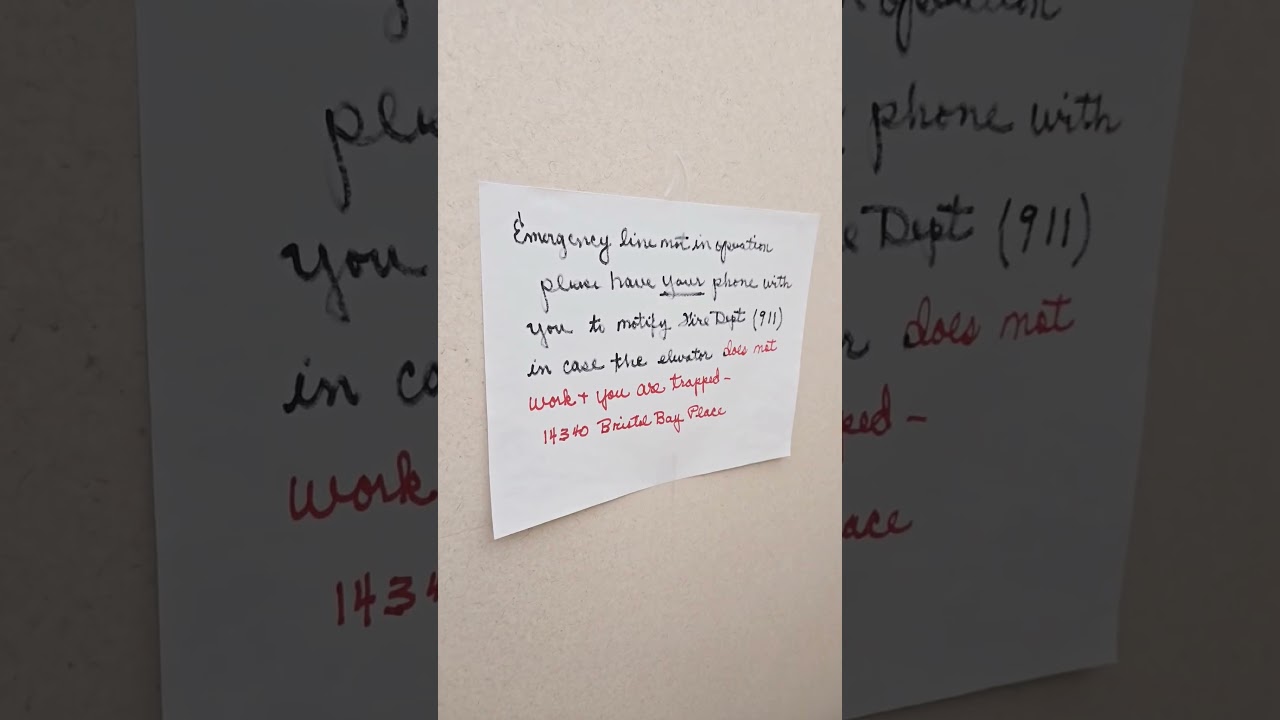 Emergency line not in operation
please have your phone with
you to notify Fire Dept (911)
in case the elevator does not
work + you are trapped-
14340 Bristol Bay Place